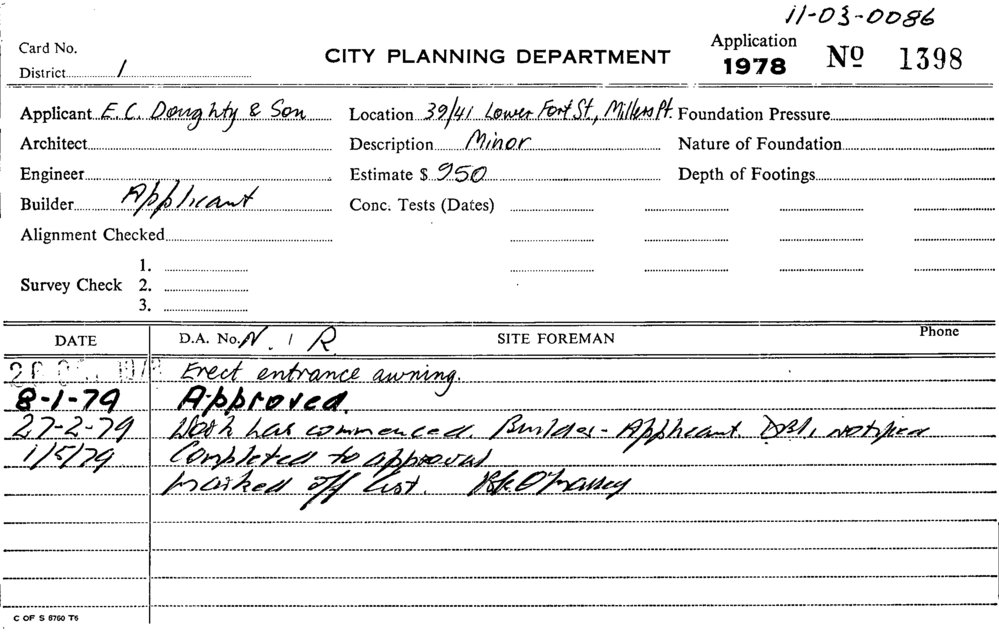 11-03-0086
Card No.
District 1
CITY PLANNING DEPARTMENT
Application
1978
Nº 1398
Applicant E. C. Doughty & Son
Location 39/41 Lower Fort St., Millers Pt.
Foundation Pressure
Architect
Description Minor
Nature of Foundation
Engineer
Estimate $ 950
Depth of Footings
Builder Applicant
Conc. Tests (Dates)
Alignment Checked
Survey Check
1.
2.
3.
DATE
D.A. No. N. / R.
SITE FOREMAN
Phone
Erect entrance awning.
8-1-79 Approved.
27-2-79 Work has commenced. Builder - Applicant. notified
1/5/79 Completed to approval
marked off list.
C OF S 6760 T6